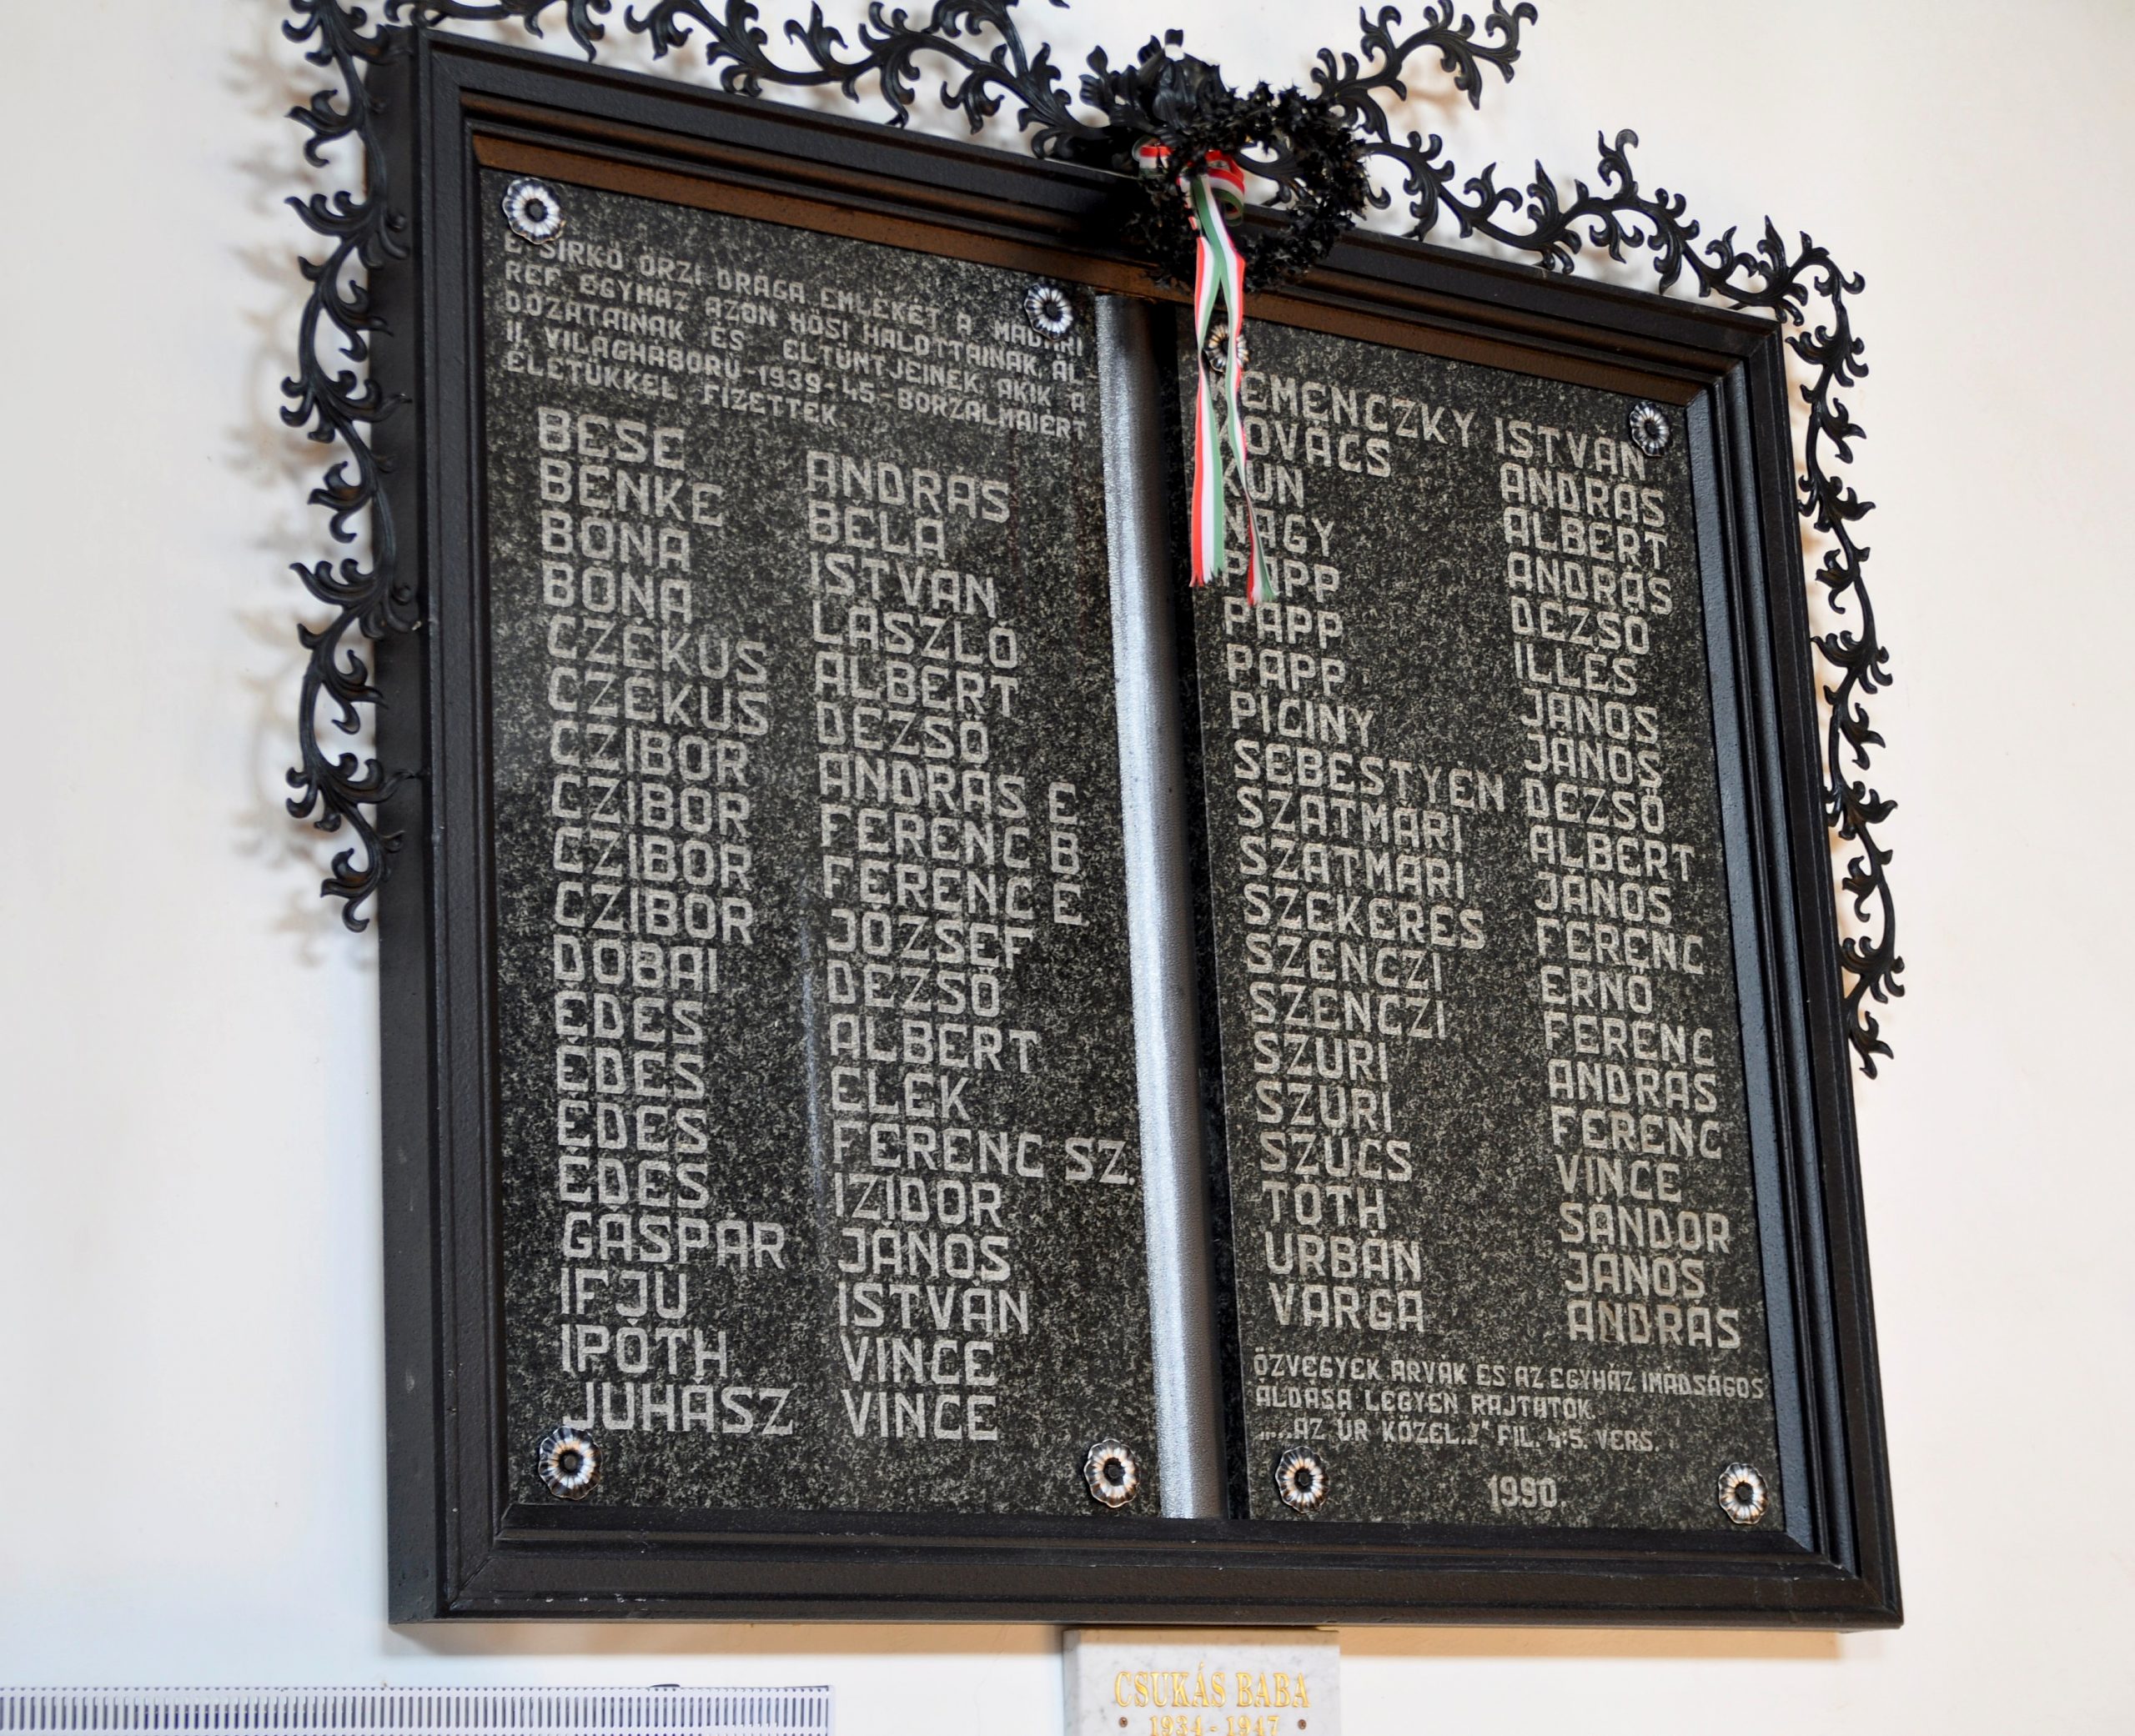 E SIRKŐ ŐRZI DRÁGA EMLÉKÉT A MADARI
REF. EGYHÁZ AZON HŐSI HALOTTAINAK, ÁL-
DOZATAINAK ÉS ELTÜNTJEINEK, AKIK A
II. VILÁGHÁBORÚ-1939-45-BORZALMAIÉRT
ÉLETÜKKEL FIZETTEK.
BESE ANDRÁS
BENKE BÉLA
BÓNA ISTVÁN
BÓNA LÁSZLÓ
CZÉKUS ALBERT
CZÉKUS DEZSŐ
CZIBOR ANDRÁS E
CZIBOR FERENC B
CZIBOR FERENC E
CZIBOR JÓZSEF
DOBAI DEZSŐ
ÉDES ALBERT
ÉDES ELEK
ÉDES FERENC SZ.
ÉDES IZIDOR
GÁSPÁR JÁNOS
IFJU ISTVÁN
IPÓTH VINCE
JUHÁSZ VINCE
KEMENCZKY ISTVÁN
KOVÁCS ANDRÁS
KUN ALBERT
NAGY ANDRÁS
PAPP DEZSŐ
PAPP ILLÉS
PAPP JÁNOS
PICINY JÁNOS
SEBESTYÉN DEZSŐ
SZATMÁRI ALBERT
SZATMÁRI JÁNOS
SZEKERES FERENC
SZENCZI ERNŐ
SZENCZI FERENC
SZÜRI ANDRÁS
SZÜRI FERENC
SZÜCS VINCE
TÓTH SÁNDOR
URBÁN JÁNOS
VARGA ANDRÁS
ÖZVEGYEK ÁRVÁK ÉS AZ EGYHÁZ IMÁDSÁGOS
ÁLDÁSA LEGYEN RAJTATOK.
„...AZ ÚR KÖZEL..." FIL. 4:5. VERS.
1990.
CSUKÁS BABA
1934-1947